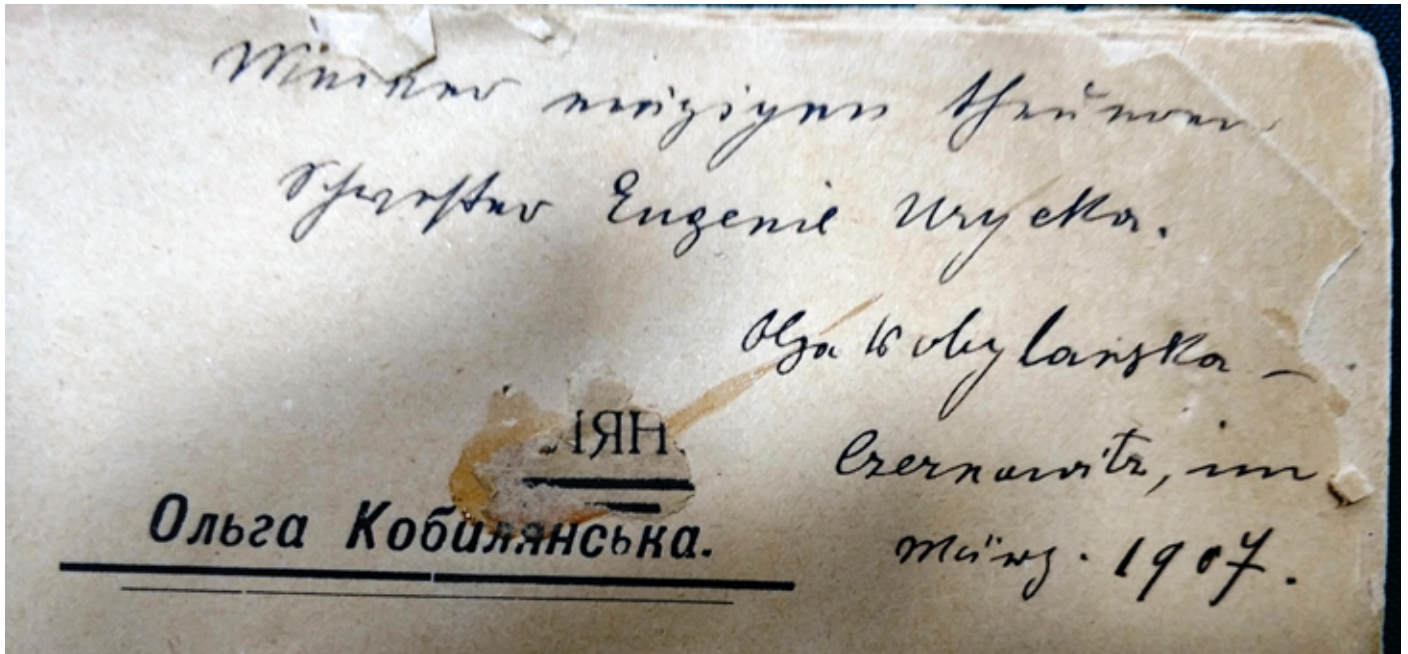 Meiner einzigen theueren
Schwester Eugenie Urycka.
Olga Kobylanska –
Czernowitz, im
März. 1907.
ЛЯН
Ольга Кобилянська.